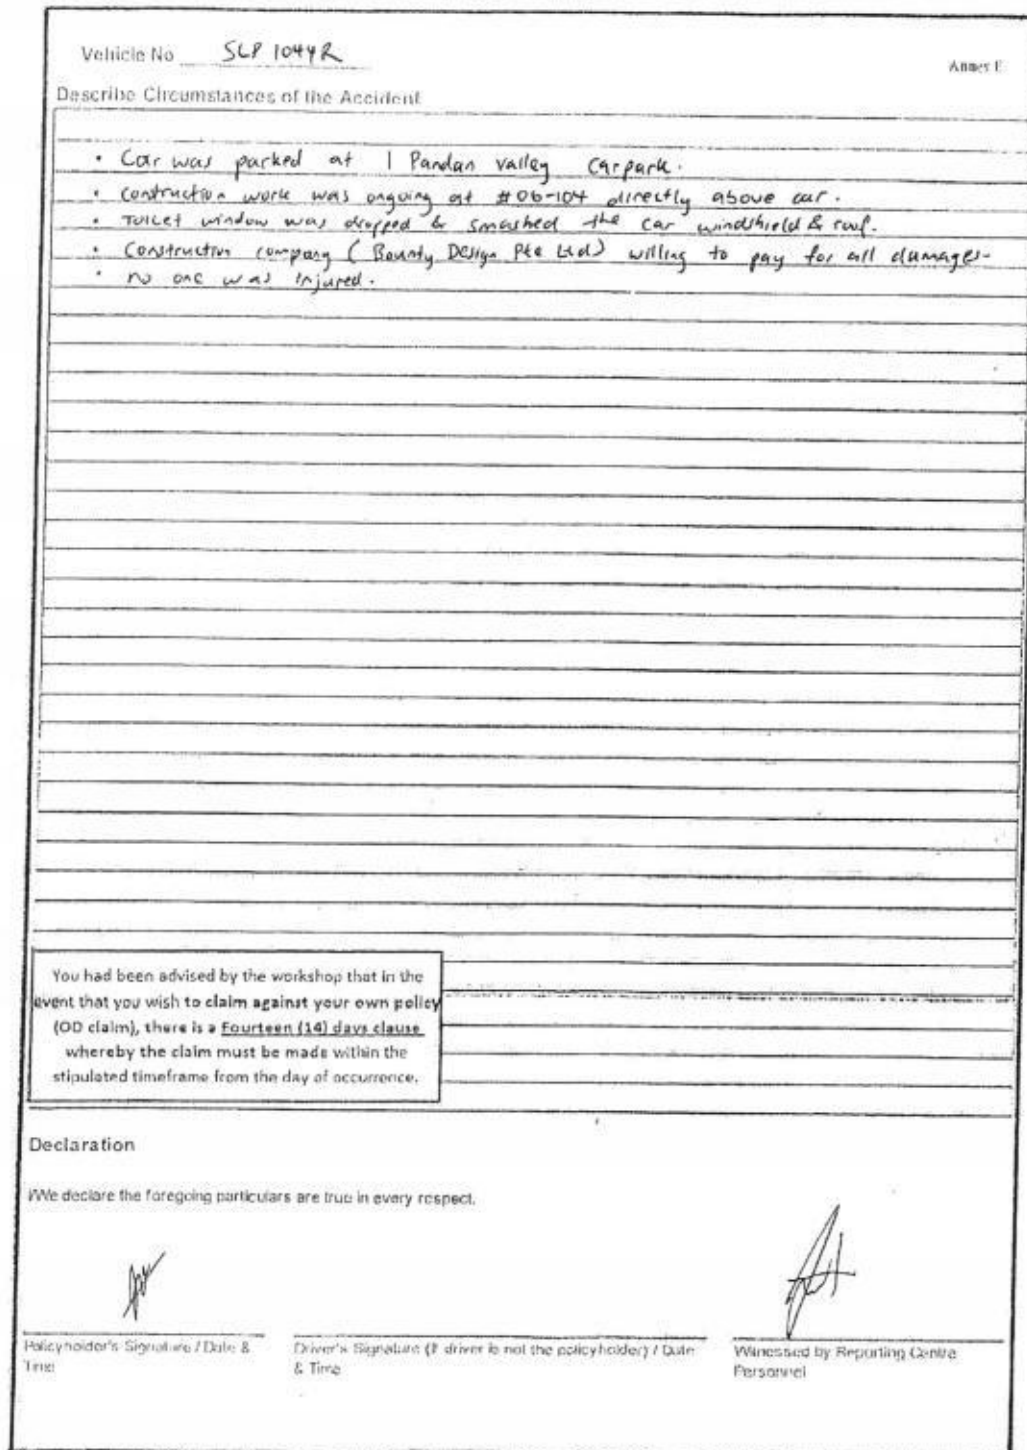 Vehicle No SLP 1044R
Annex E
Describe Circumstances of the Accident
• Car was parked at 1 Pandan valley carpark.
• Construction work was ongoing at #06-104 directly above car.
• Toilet window was dropped & smashed the car windshield & roof.
• Construction company (Bounty Design Pte Ltd) willing to pay for all damages.
• no one was injured.
You had been advised by the workshop that in the
event that you wish to claim against your own policy
(OD claim), there is a Fourteen (14) days clause
whereby the claim must be made within the
stipulated timeframe from the day of occurrence.
Declaration
I/We declare the foregoing particulars are true in every respect.
Policyholder's Signature / Date &
Time
Driver's Signature (If driver is not the policyholder) / Date
& Time
Witnessed by Reporting Centre
Personnel